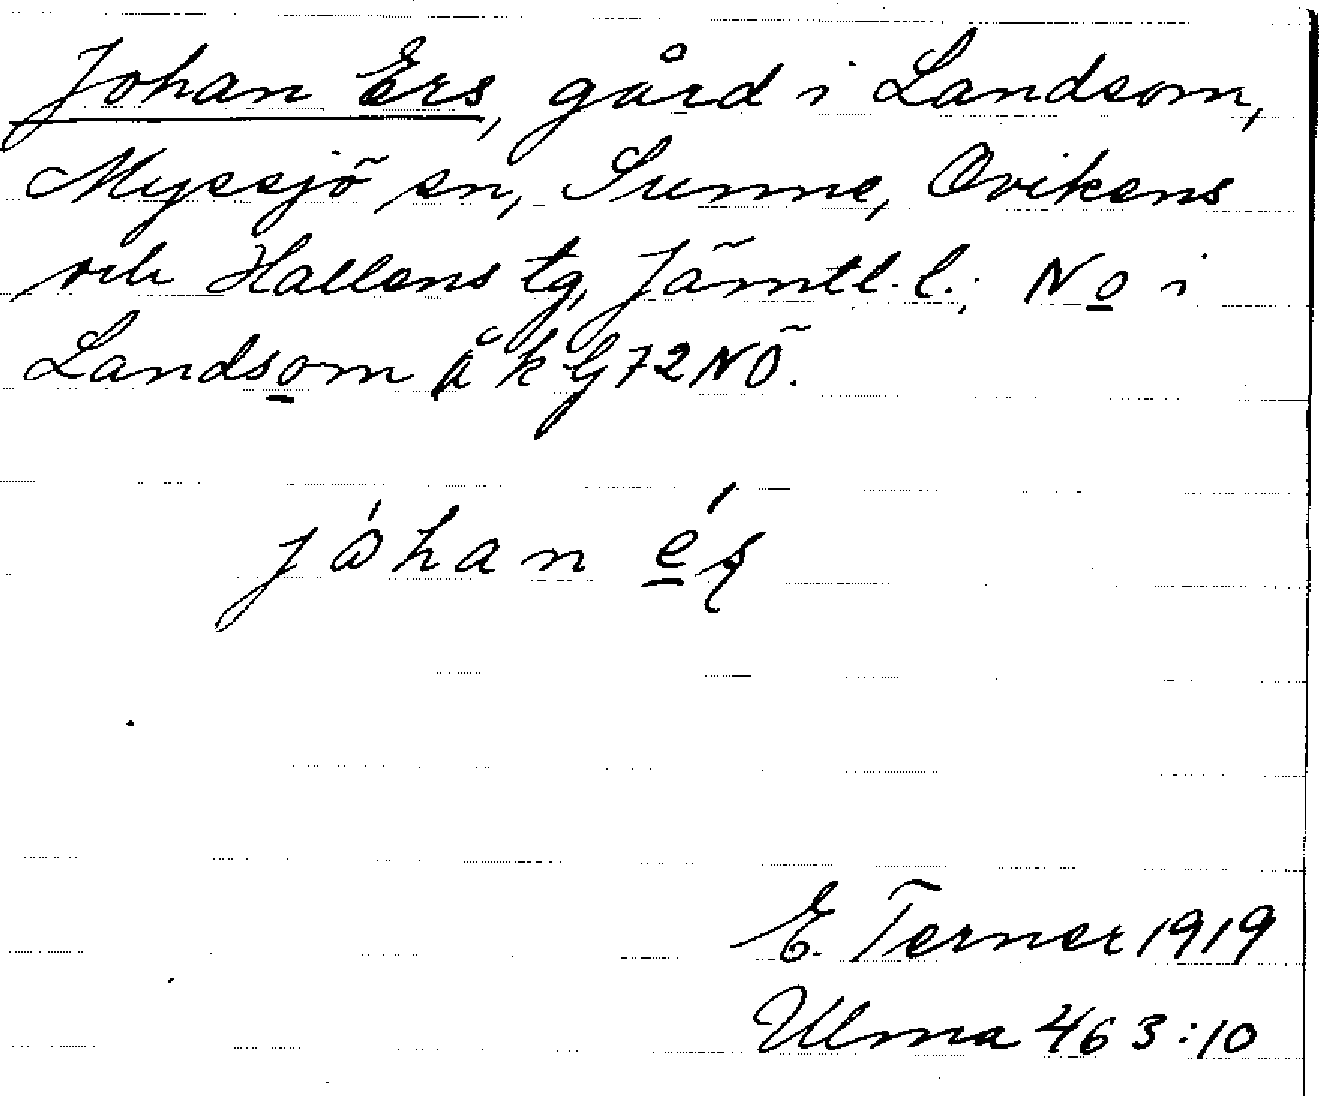 Johan Ers, gård i Landsom,
Myssjö sn, Sunne, Ovikens
och Hallens tg, Jämtl. l.; No i
Landsom å k bl 72 NÖ.
jóhan éʂ
E. Terner 1919
Ulma 463:10